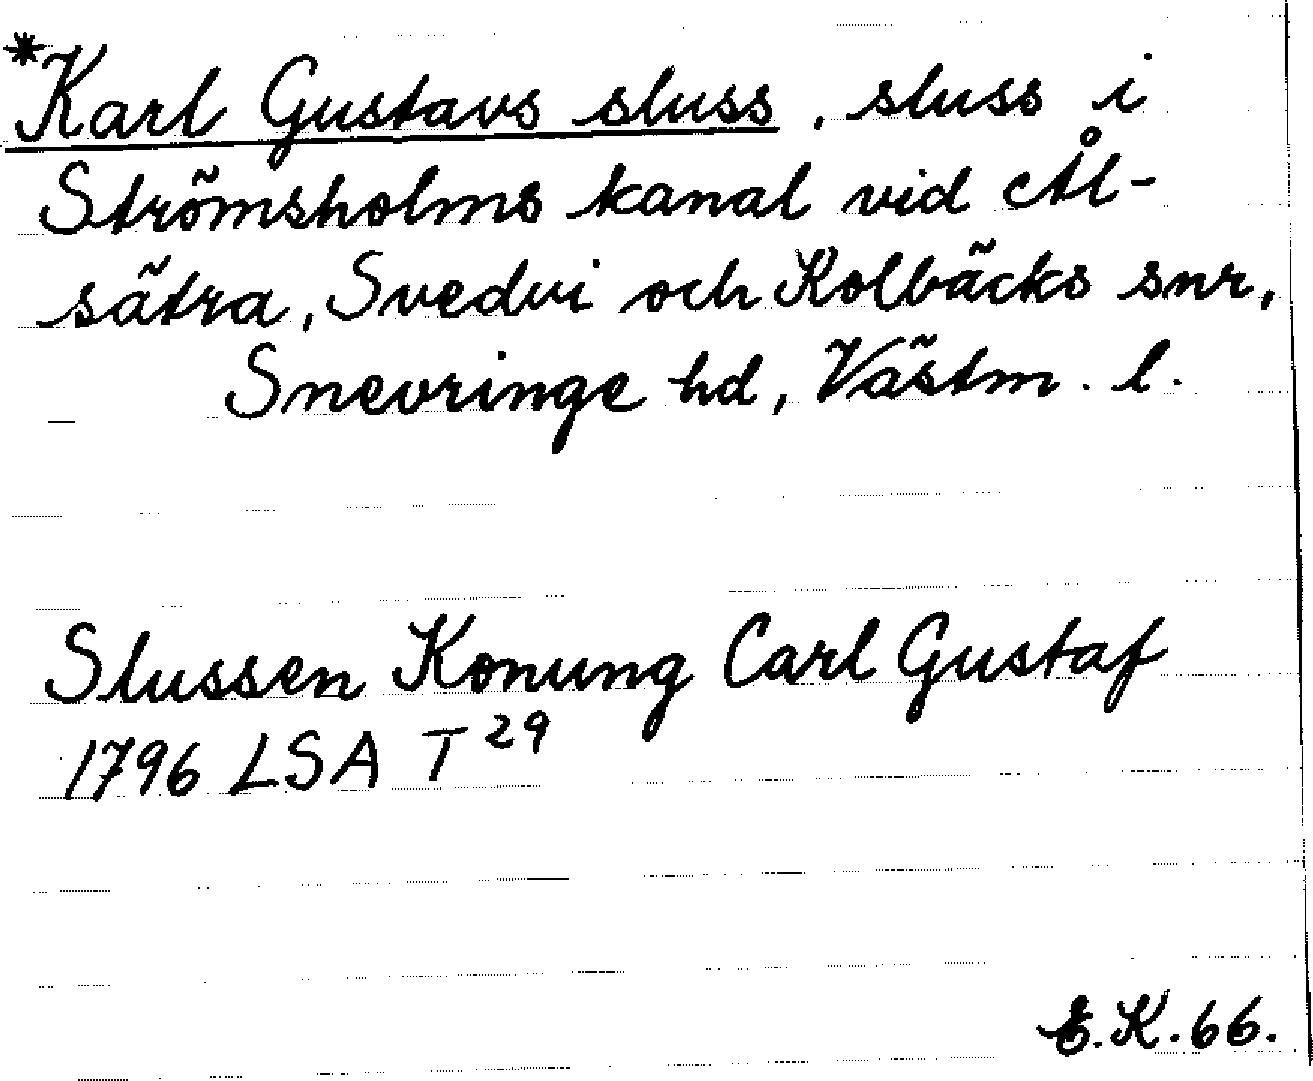 *Karl Gustavs sluss, sluss i
Strömsholms kanal vid Ål-
sätra, Svedvi och Kolbäcks snr,
Snevringe hd, Västm. l.
Slussen Konung Carl Gustaf
1796 LSA T 29
E.K.66.